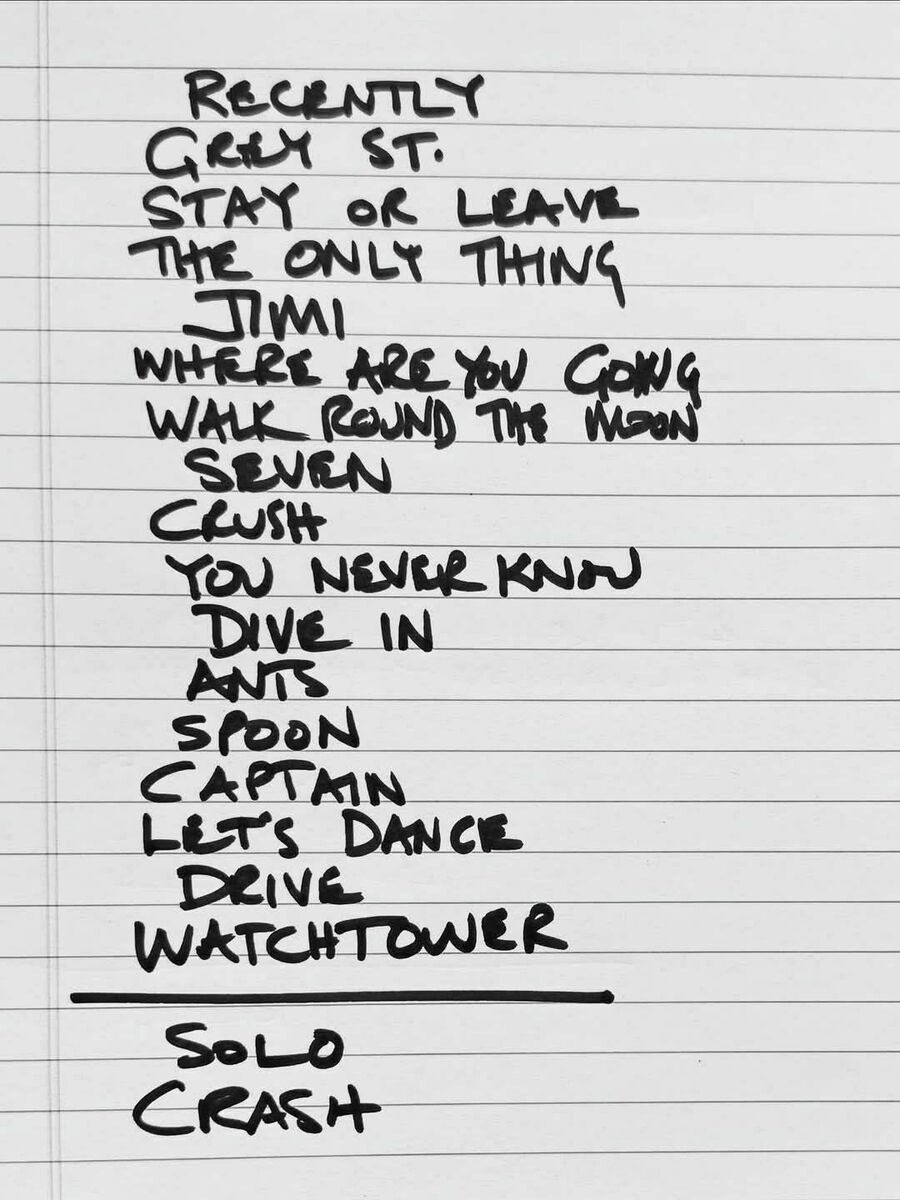 RECENTLY
GREY ST.
STAY OR LEAVE
THE ONLY THING
JIMI
WHERE ARE YOU GOING
WALK ROUND THE MOON
SEVEN
CRUSH
YOU NEVER KNOW
DIVE IN
ANTS
SPOON
CAPTAIN
LET'S DANCE
DRIVE
WATCHTOWER
SOLO
CRASH